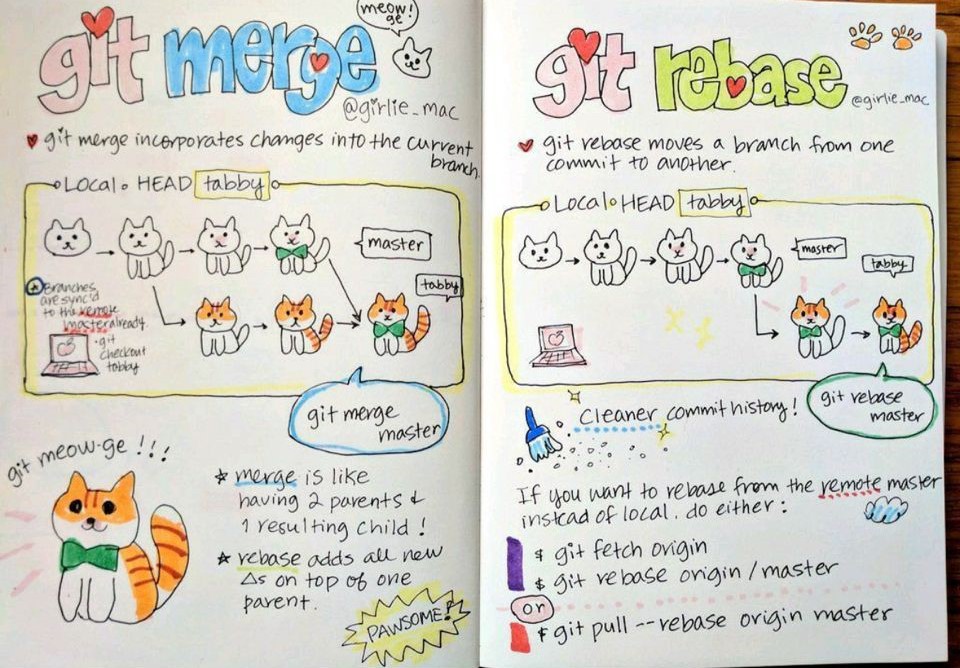 git merge
meow!
ge
@girlie_mac
git merge incorporates changes into the current
branch.
Local HEAD tabby
master
tabby
Branches
are sync'd
to the remote
master already.
git
checkout
tabby
git merge
master
git meow-ge !!!
merge is like
having 2 parents &
1 resulting child!
rebase adds all new
Δs on top of one
parent.
PAWSOME!
git rebase
@girlie_mac
git rebase moves a branch from one
commit to another.
Local HEAD tabby
master
tabby
git rebase
master
Cleaner commit history!
If you want to rebase from the remote master
instead of local, do either:
$ git fetch origin
$ git rebase origin/master
or
$ git pull --rebase origin master